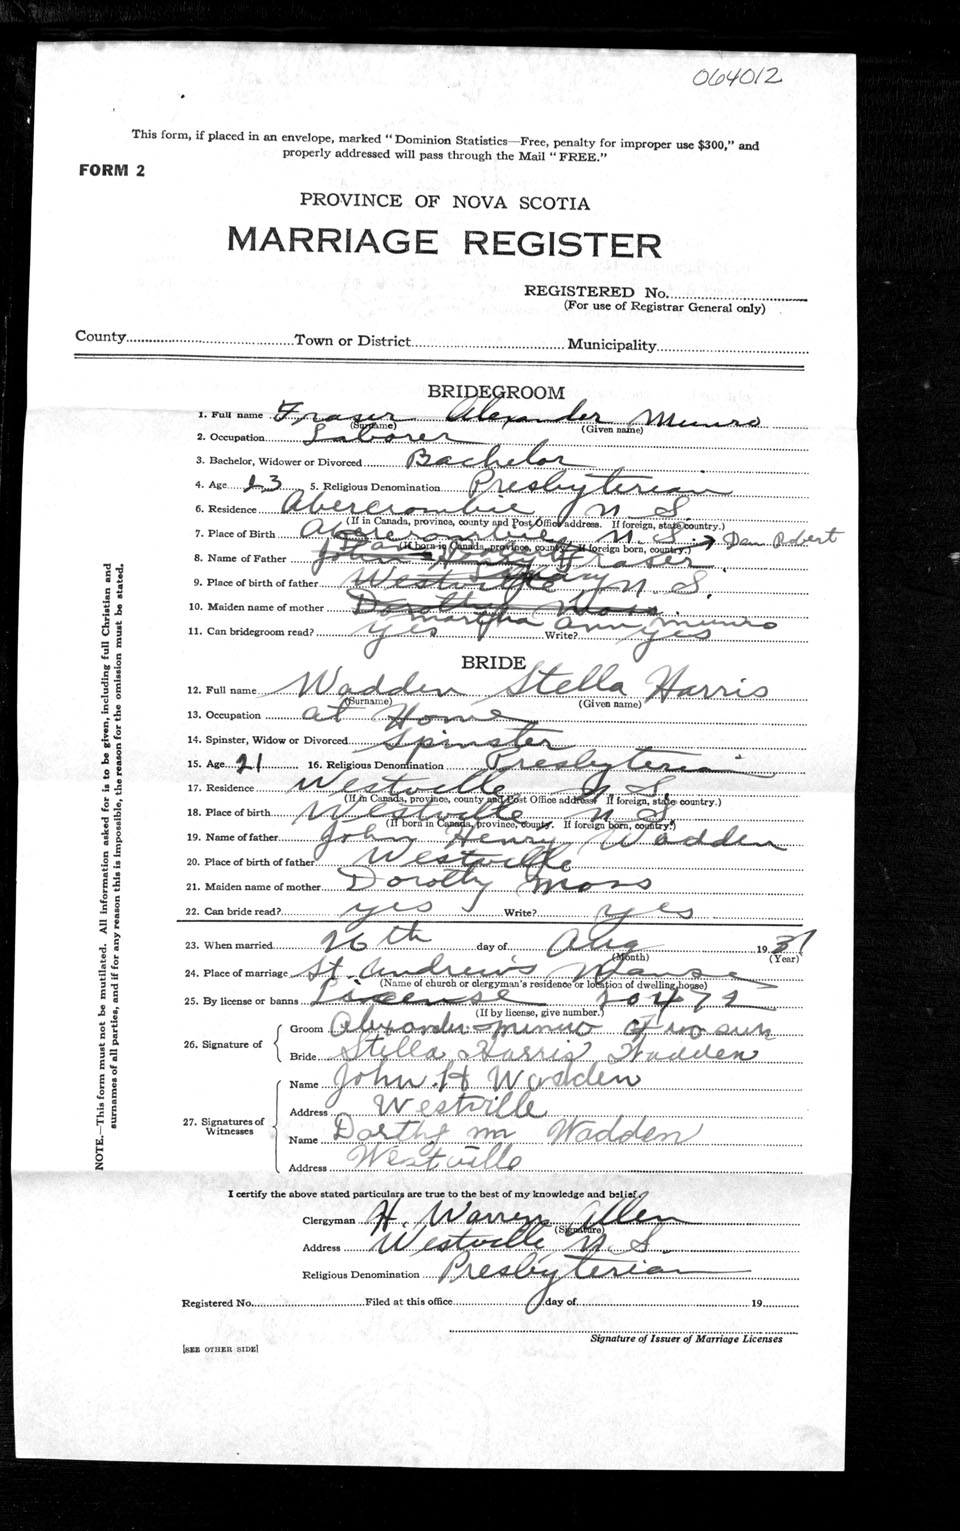 064012
This form, if placed in an envelope, marked "Dominion Statistics—Free, penalty for improper use $300," and
properly addressed will pass through the Mail "FREE."
FORM 2
PROVINCE OF NOVA SCOTIA
MARRIAGE REGISTER
REGISTERED No.
(For use of Registrar General only)
County Town or District Municipality
BRIDEGROOM
1. Full name Fraser Alexander Munro
(Surname) (Given name)
2. Occupation Laborer
3. Bachelor, Widower or Divorced Bachelor
4. Age 23 5. Religious Denomination Presbyterian
6. Residence Abercrombie N S
(If in Canada, province, county and Post Office address. If foreign, state country.)
7. Place of Birth Abercrombie N. S. Dan Robert
(If born in Canada, province, county. If foreign born, country.)
8. Name of Father John Fraser
9. Place of birth of father Westville N. S.
10. Maiden name of mother Dorothy Moss
Martha Ann Munro
11. Can bridegroom read? yes Write? yes
BRIDE
12. Full name Wadden Stella Harris
(Surname) (Given name)
13. Occupation at Home
14. Spinster, Widow or Divorced Spinster
15. Age 21 16. Religious Denomination Presbyterian
17. Residence Westville N S
(If in Canada, province, county and Post Office address. If foreign, state country.)
18. Place of birth Westville N S.
(If born in Canada, province, county. If foreign born, country.)
19. Name of father John Henry Wadden
20. Place of birth of father Westville
21. Maiden name of mother Dorothy Moss
22. Can bride read? yes Write? yes
23. When married 26th day of Aug 1937
(Month) (Year)
24. Place of marriage St. Andrew's Manse
(Name of church or clergyman's residence or location of dwelling house)
25. By license or banns License 20472
(If by license, give number.)
26. Signature of
Groom Alexander Munro
Bride Stella Harris Wadden
27. Signatures of Witnesses
Name John H Wadden
Address Westville
Name Dorthy M Wadden
Address Westville
I certify the above stated particulars are true to the best of my knowledge and belief.
Clergyman H. Warren Allen
(Signature)
Address Westville N. S.
Religious Denomination Presbyterian
Registered No. Filed at this office day of 19
Signature of Issuer of Marriage Licenses
[SEE OTHER SIDE]
NOTE.—This form must not be mutilated. All information asked for is to be given, including full Christian and
surnames of all parties, and if for any reason this is impossible, the reason for the omission must be stated.